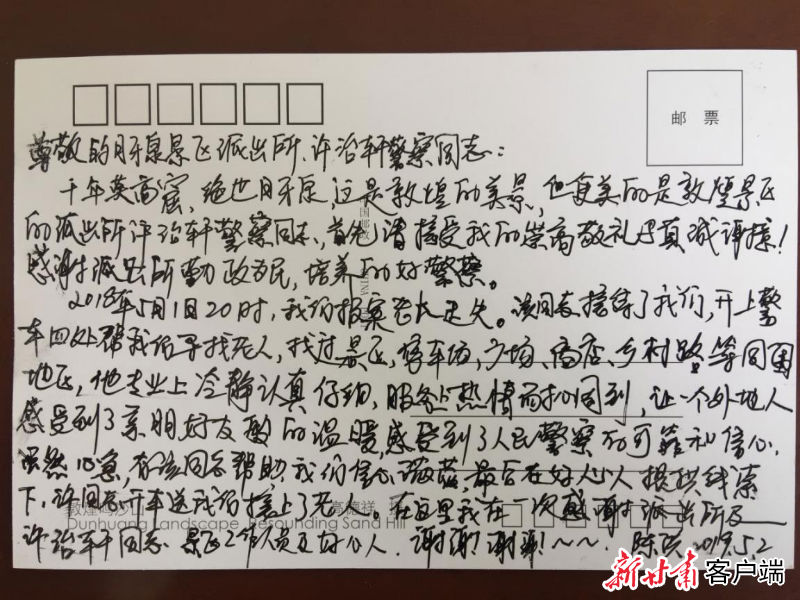 邮 票
尊敬的月牙泉景区派出所、许治轩警察同志：
千年莫高窟，绝世月牙泉，这是敦煌的美景，但更美的是敦煌景区
的派出所许治轩警察同志，首先请接受我的崇高敬礼与真诚谢接！
感谢派出所勤政为民，培养的好警察。
2018年5月1日20时，我们报案老人走失。该同志接待了我们，开上警
车四处帮我们寻找老人，找过景区，停车场，广场、商店、乡村路，等周围
地区，他专业上冷静认真仔细，服务上热情而和周到，让一个外地人
感受到了亲朋好友般的温暖感受到了人民警察的可靠和信心，
虽然心急，有该同志帮助，我们信心 最后在好心人提供线索
下，许同志开车送我们接上了老人。在这里我在一次感谢派出所及
敦煌鸣沙山 高德祥
Dunhuang Landscape Resounding Sand Hill
许治轩同志 景区工作人员及好心人。谢谢！谢谢！～～ 5.2
新甘肃 客户端